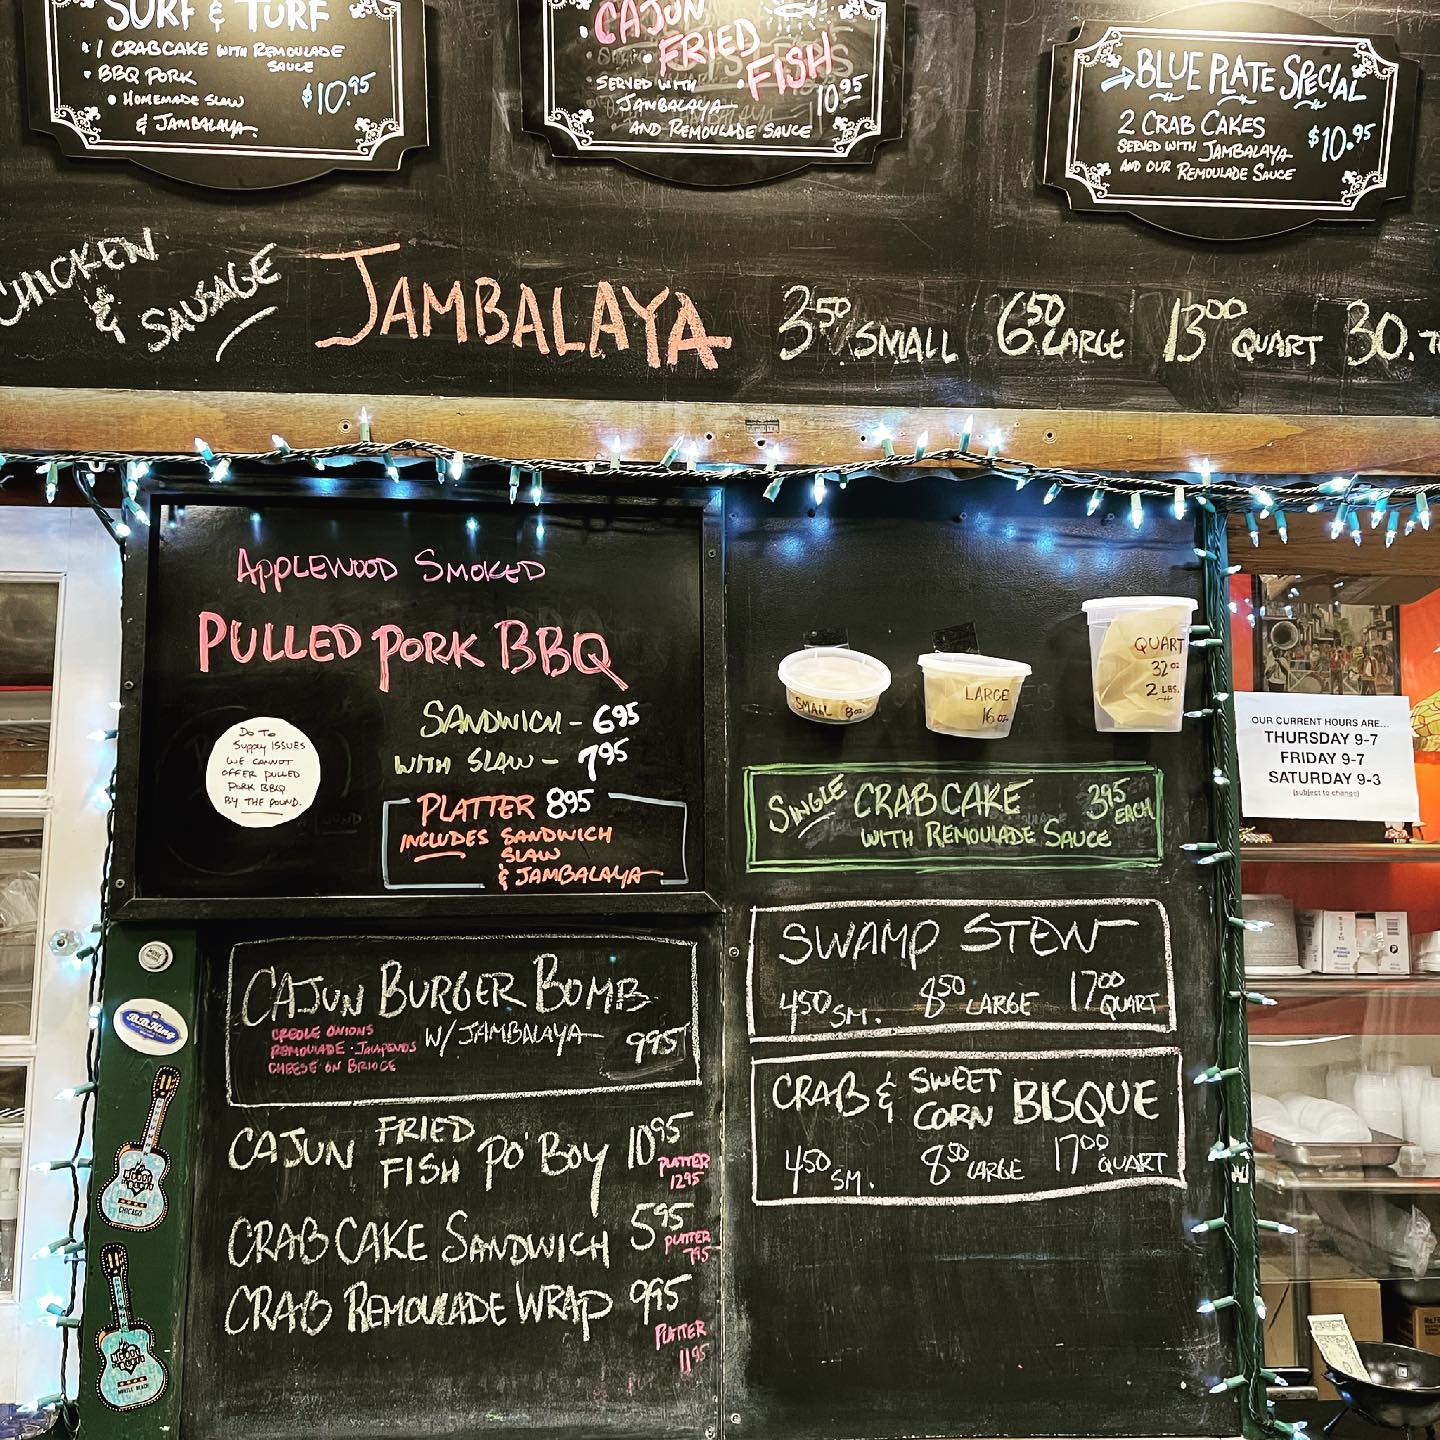 SURF & TURF
• 1 CRABCAKE WITH REMOULADE
SAUCE
• BBQ PORK
• HOMEMADE SLAW
& JAMBALAYA
$10.95
CAJUN
FRIED
FISH
SERVED WITH
JAMBALAYA
AND REMOULADE SAUCE
10.95
BLUE PLATE SPECIAL
2 CRAB CAKES
SERVED WITH JAMBALAYA
AND OUR REMOULADE SAUCE
$10.95
CHICKEN
& SAUSAGE
JAMBALAYA 3.50 SMALL 6.50 LARGE 13.00 QUART 30.
APPLEWOOD SMOKED
PULLED PORK BBQ
SANDWICH - 6.95
WITH SLAW - 7.95
PLATTER 8.95
INCLUDES SANDWICH
SLAW
& JAMBALAYA
DO TO
SUPPLY ISSUES
WE CANNOT
OFFER PULLED
PORK BBQ
BY THE POUND.
SMALL 8oz
LARGE
16 oz
QUART
32 oz
2 LBS.
OUR CURRENT HOURS ARE...
THURSDAY 9-7
FRIDAY 9-7
SATURDAY 9-3
(subject to change)
SINGLE CRABCAKE 3.95 EACH
WITH REMOULADE SAUCE
SWAMP STEW
4.50 SM. 8.50 LARGE 17.00 QUART
CRAB & SWEET CORN BISQUE
4.50 SM. 8.50 LARGE 17.00 QUART
CAJUN BURGER BOMB
W/ JAMBALAYA 9.95
CREOLE ONIONS
REMOULADE · JALAPENOS
CHEESE ON BRIOCE
CAJUN FRIED FISH PO'BOY 10.95
PLATTER
12.95
CRAB CAKE SANDWICH 5.95
PLATTER
7.95
CRAB REMOULADE WRAP 9.95
PLATTER
11.95
B.B. King
HOUSE OF BLUES
CHICAGO
HOUSE OF BLUES
MYRTLE BEACH